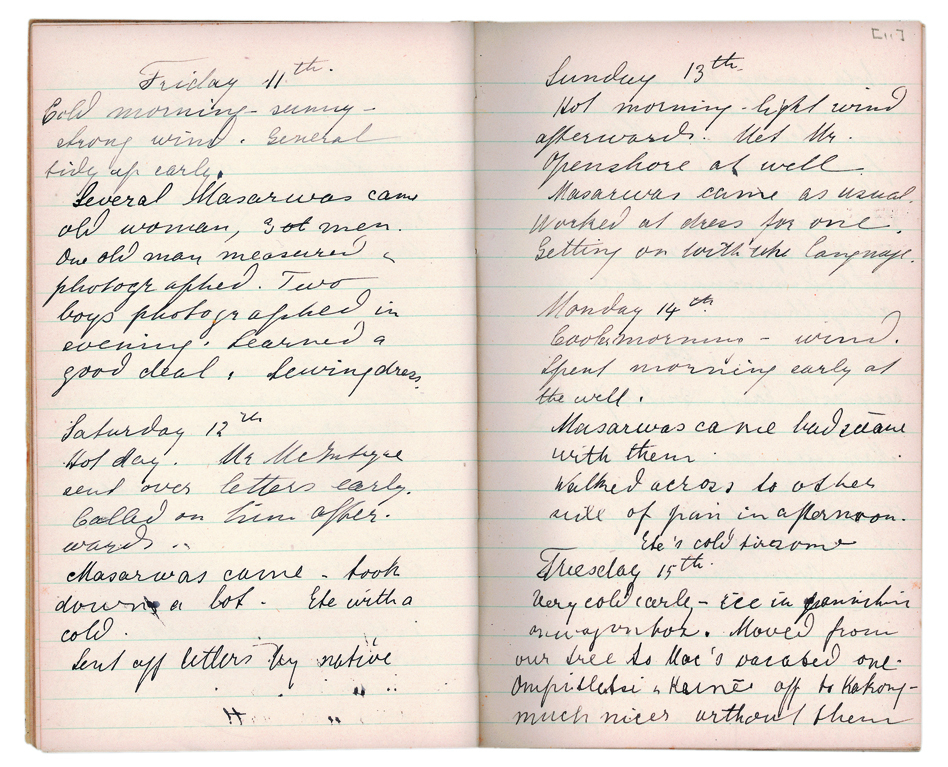 Friday 11th.
Cold morning - sunny -
strong wind. General
tidy up early.
Several Masarwas came
old woman, 3 ot men.
One old man measured &
photographed. Two
boys photographed in
evening. Learned a
good deal. Sewing dress.
Saturday 12th
Hot day. Mr McIntyre
sent over letters early.
Called on him after-
wards ..
Masarwas came - took
down a lot - Ete with a
cold.
Sent off letters by native
[11]
Sunday 13th.
Hot morning - light wind
afterwards. Met Mr.
Openshore at well.
Masarwas came as usual.
Worked at dress for one.
Getting on with the language.
Monday 14th.
Cool morning - wind.
Spent morning early at
the well.
Masarwas came had
with them.
Walked across to other
side of pan in afternoon.
Ete's cold tiresome
Tuesday 15th.
Very cold early - ice in pannikin
on wagonbox. Moved from
our tree to Mac's vacated one.
Ompilletsi & Kainē off to Kakong -
much nicer without them